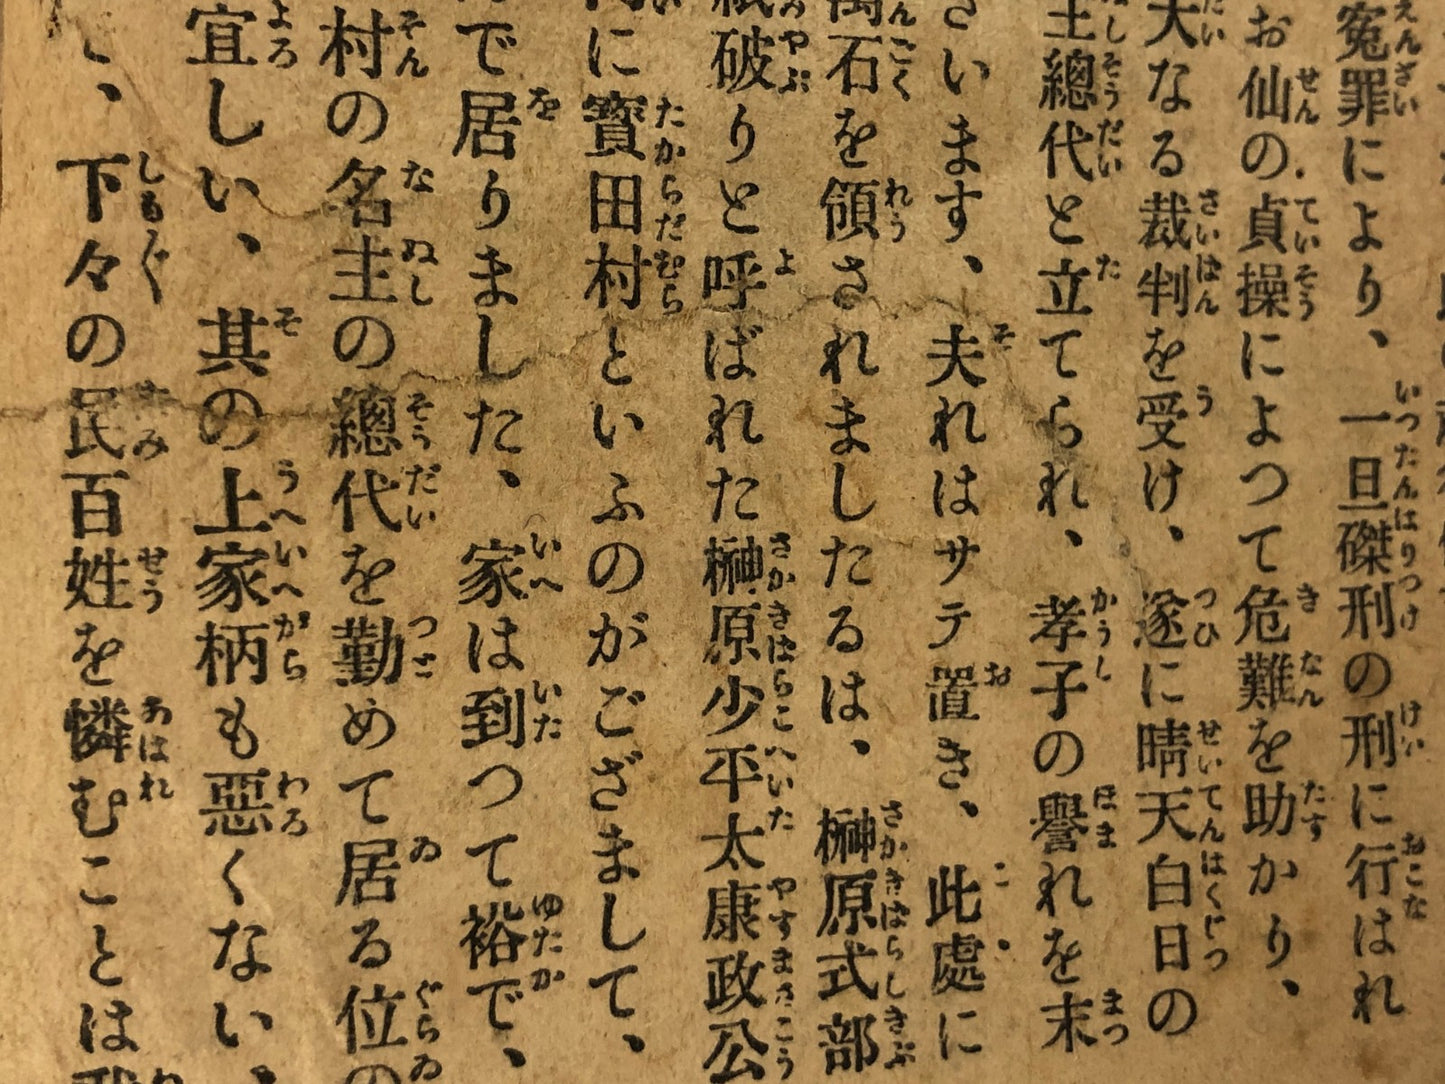 冤罪により、一旦磔刑の刑に行はれ
お仙の貞操によつて危難を助かり、
大なる裁判を受け、遂に晴天白日の
主總代と立てられ、孝子の譽れを末
ざいます、夫れはサテ置き、此處に
萬石を領されましたるは、榊原式部
紙破りと呼ばれた榊原少平太康政公
に寳田村といふのがございまして、
で居りました、家は到つて裕で、
村の名主の總代を勤めて居る位の
宜しい、其の上家柄も惡くない、
、下々の民百姓を憐むことは